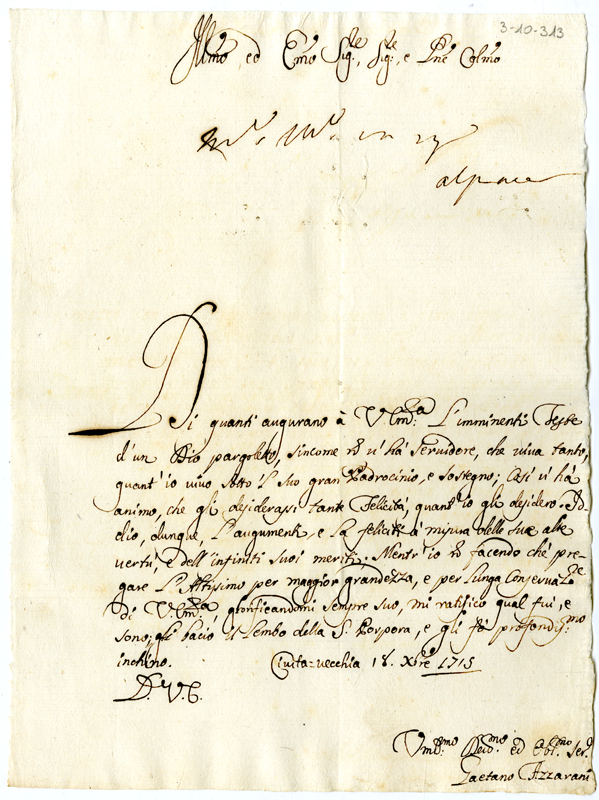 3-10-313
Illmo, ed Emo Sigre, Sigre, e Pne Colmo
al pnce
Di quanti augurano à V. Em:za L'imminenti Feste
d'un Dio pargoletto, sincome nõ v'hà servidore, che viva tanto,
quant'io vivo sotto il suo gran Padrocinio, e sostegno; Così v'hà
animo, che gli desiderassi tante Felicità, quant'io gli desidero. Id-
dio, dunque, L'augumenti, e La feliciti à misura delle sue alte
vertù, e dell'infiniti suoi meriti. Mentr'io nõ facendo che pre-
gare L'Altissimo per maggior grandezza, e per lunga Conservazne
di V. Em:za glorificandomi sempre suo, mi ratifico qual fui, e
sono; gli bacio il Lembo della S. Porpora, e gli fò profondis:mo
inchino. Civita-vecchia 18. Xbre 1715
D. V. E.
Vmo:mo Devo:mo ed Obl:mo Ser.
Gaetano Azzarani